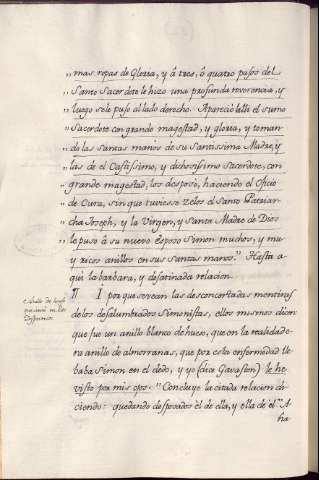 „ mas ropas de Gloria, y â tres, ô quatro pasos del
„ Santo Sacerdote le hizo una profunda reverencia, y
„ luego se le puso al lado derecho. Apareció alli el sumo
„ Sacerdote con grande magestad, y gloria, y toman-
„ do las santas manos de su Santissima Madre, y
„ las de el Castissimo, y dichosissimo Sacerdote, con
„ grande magestad, los desposó, haciendo el oficio
„ de Cura, sin que tuviesse zelos el Santo Patriar-
„ cha Joseph, y la Virgen, y Santa Madre de Dios
„ le puso â su nuevo Esposo Simon muchos, y mu
„ y ricos anillos en sus santas manos." Hasta a-
qui la barbara, y desatinada relacion.
Anillo de
¶ I porque se vean las desconcertadas mentiras
de los desalumbrados Simonistas, ellos mismos dicen
que fue un anillo blanco de hueso, que en la realidad e-
ra anillo de almorranas, que por esta enfermedad lle-
baba Simon en el dedo, y yo (dice Gavaston) le he
visto por mis ojos. Concluye la citada relacion di-
ciendo: quedando desposados él de ella, y ella de él." A-
ña